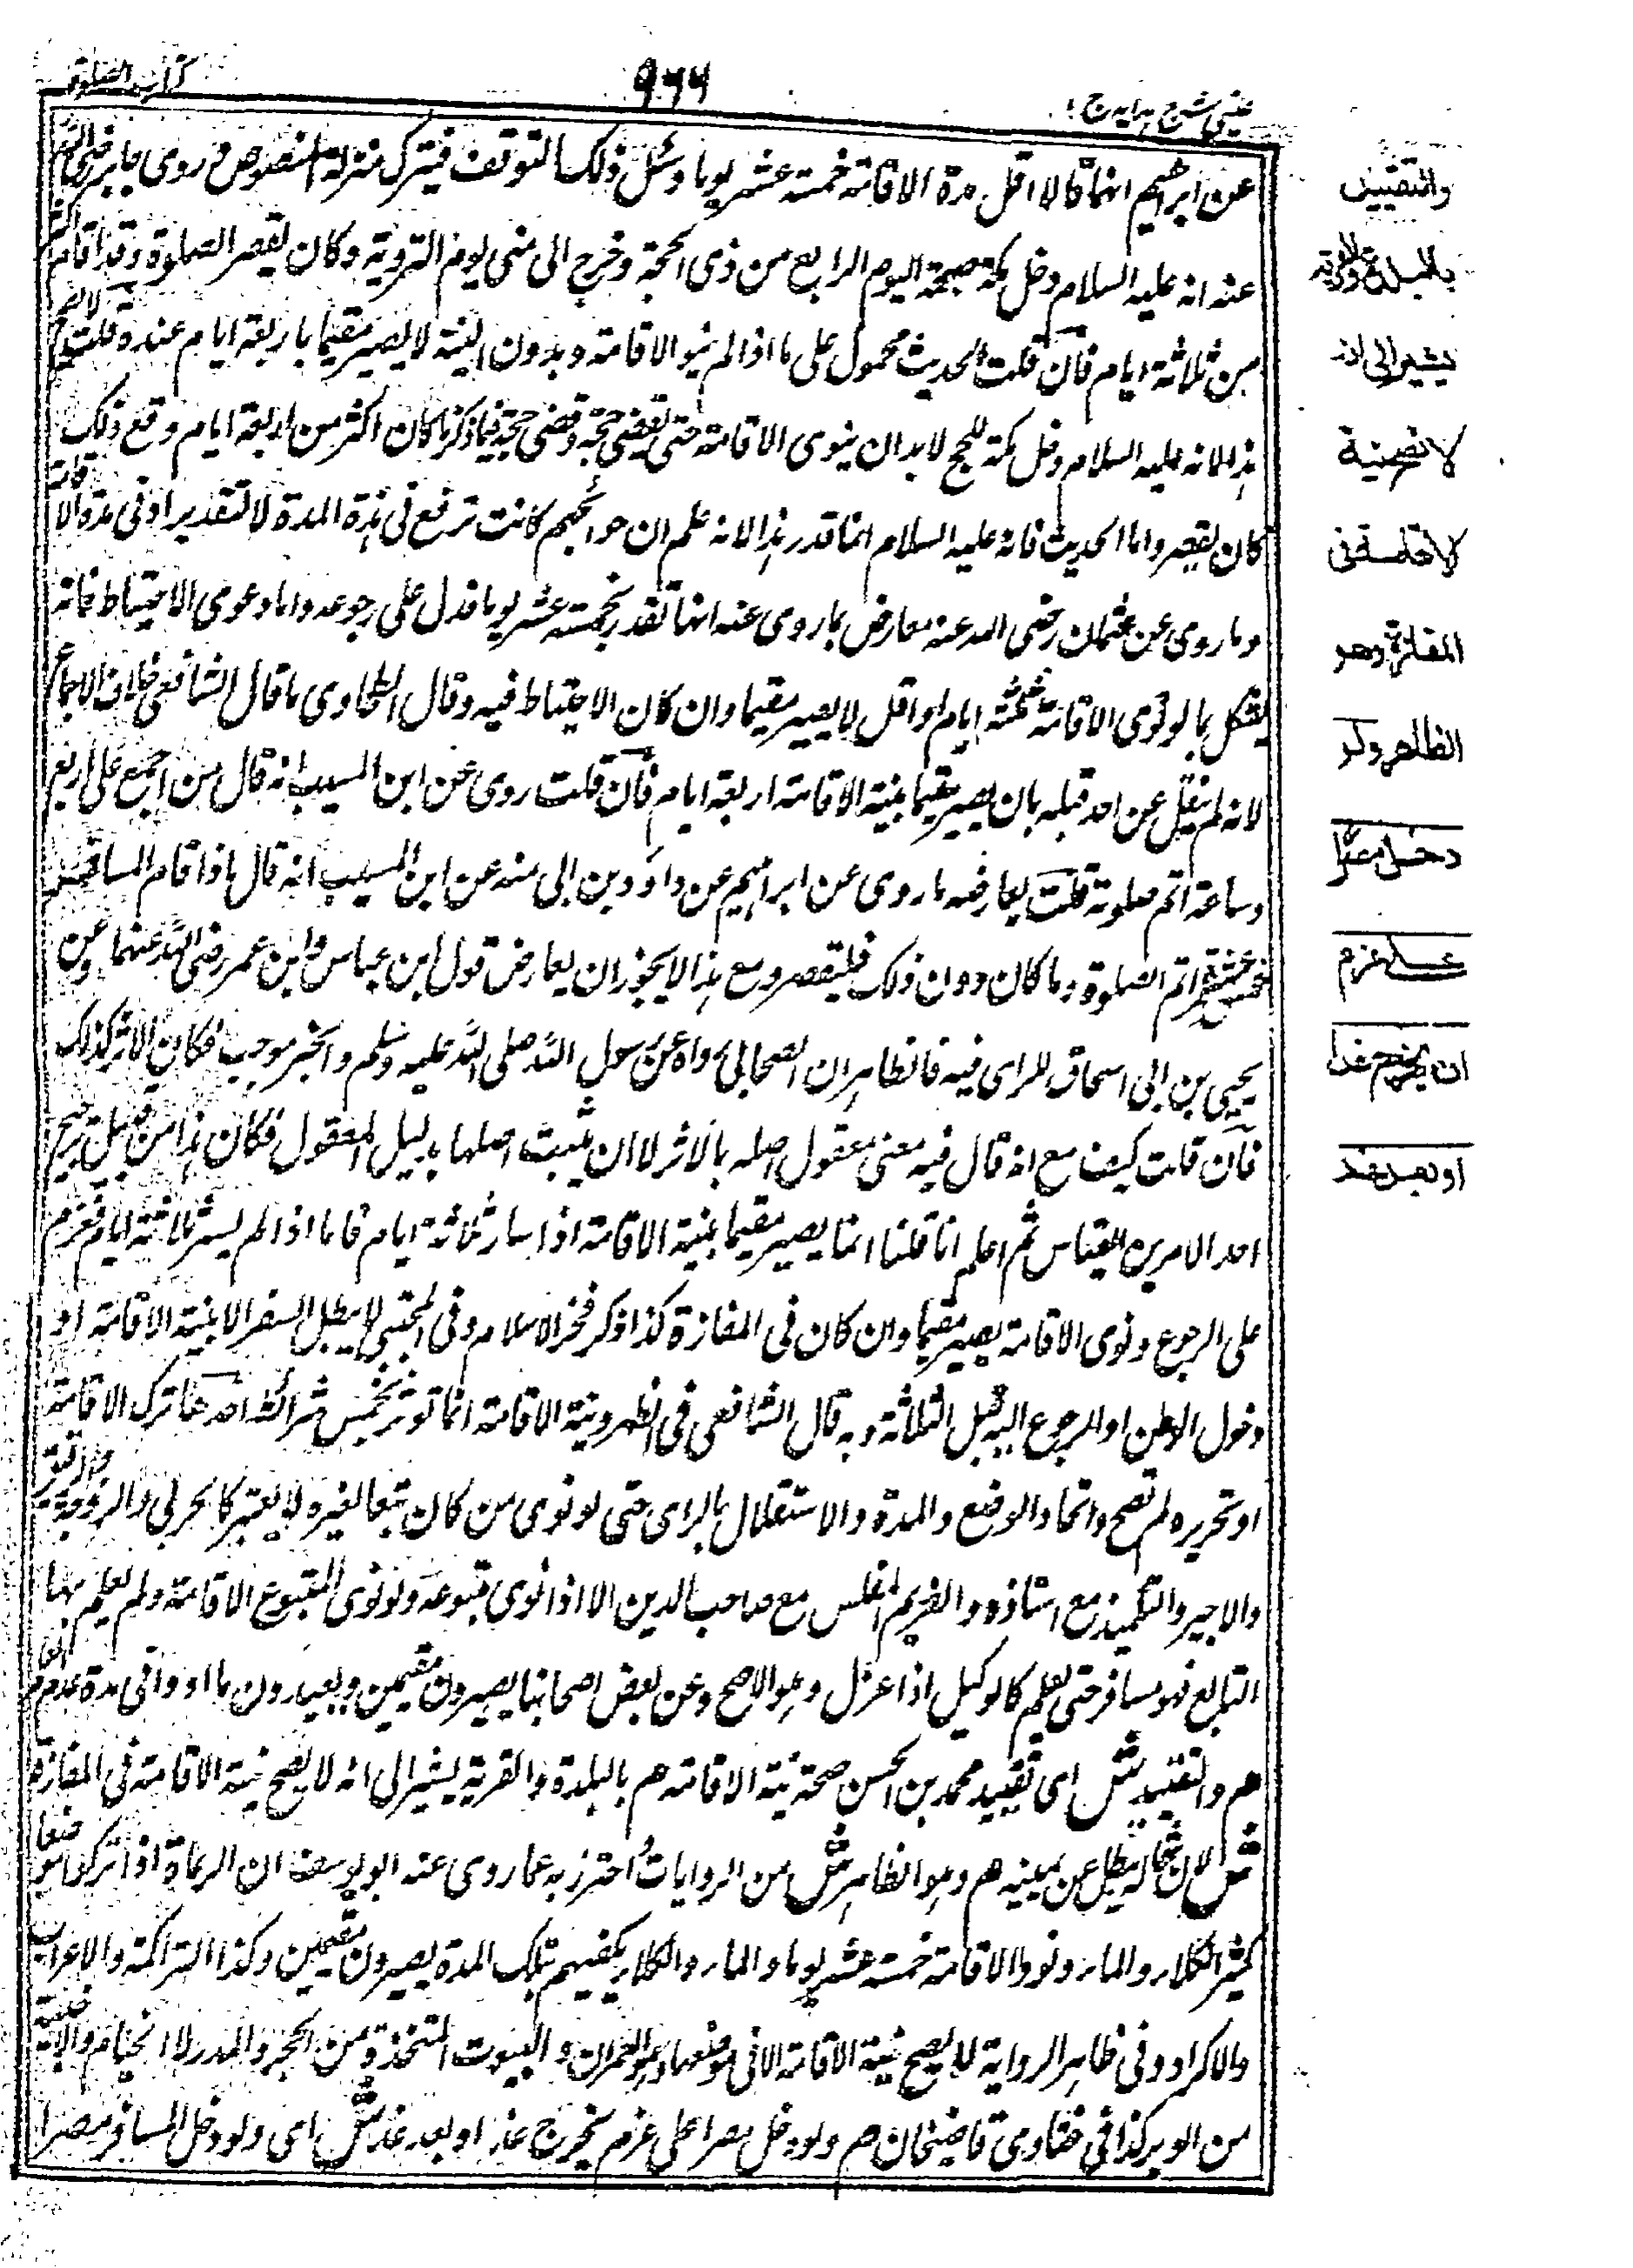 عینی شرح ہدایہ ج ۱
۹۶۶
کتاب الصلوة
عن ابراہیم انہما قالا اقل مدة الاقامتہ خمستہ عشر یوما ومثل ذلک التوقف فیترک منزلة المنصوص وروی جابر رضی اللہ
عنہ انہ علیہ السلام دخل مکة صبیحة الیوم الرابع من ذی الحجة وخرج الی منی یوم الترویة وکان یقصر الصلوة وقد اقام اکثر
من ثلاثة ایام فان قلت الحدیث محمول علی ما اذا لم ینو الاقامتہ وبدون النیة لا یصیر مقیما باربعة ایام عندہ قلت لا یصح
ہذا لانہ علیہ السلام دخل مکة للحج لا بد ان ینوی الاقامتہ حتی یقضی حجہ وقضی حجہ فیما ذکرنا کان اکثر من اربعة ایام ومع ذلک
کان یقصر واما الحدیث فانہ علیہ السلام انما قدر ہذا لانہ علم ان حوائجہم کانت ترفع فی ہذہ المدة لا لتقدیر ادنی مدة الاقامة
وما روی عن عثمان رضی اللہ عنہ معارض بما روی عنہ انہا تقدر بخمستہ عشر یوما فدل علی رجوعہ واما دعوی الاحتیاط فانہ
یشکل بما لو نوی الاقامتہ ثلثة ایام او اقل لا یصیر مقیما وان کان الاحتیاط فیہ وقال الطحاوی ما قال الشافعی خلاف الاجماع
لانہ لم ینقل عن احد قبلہ بان یصیر مقیما بنیة الاقامتہ اربعة ایام فان قلت روی عن ابن المسیب انہ قال من اجمع علی اربع
وساعة اتم صلوتہ قلت یعارضہ ما روی عن ابراہیم عن داؤد بن ابی ہند عن ابن المسیب انہ قال اذا اقام المسافر
خمس عشرة اتم الصلوة وما کان دون ذلک فلیقصر ومع ہذا لا یجوز ان یعارض قول ابن عباس وابن عمر رضی اللہ عنہما وعن
یحیی بن ابی اسحاق للرای فیہ فالظاہر ان الصحابی رواہ عن رسول اللہ صلی اللہ علیہ وسلم والخبر موجب فکان الاثر کذلک
فان قلت کیف مع انہ قال فیہ معنی معقول اصلہ بالاثر لا ان یثبت اصلہا بدلیل المعقول فکان ہذا من قبیل ترجیح
احد الامرین بالقیاس ثم اعلم انا قلنا انما یصیر مقیما بنیة الاقامتہ اذا سار ثلاثة ایام فاما اذا لم یسر ثلاثة ایام فعزم
علی الرجوع ونوی الاقامتہ یصیر مقیما وان کان فی المفازة کذا ذکر فخر الاسلام وفی المجتبی لا یبطل السفر الا بنیة الاقامتہ او
دخول الوطن او الرجوع الیہ قبل الثلاثة وبہ قال الشافعی فی اظہر ونیة الاقامتہ انما توثر بخمس شرائط احدہا ترک الاقامتہ
او تحریرہ لم تصح واتحاد الموضع والمدة والاستقلال بالرای حتی لو نوی من کان تبعا لغیرہ لا یعتبر کالحربی والزوجة والرقیق
والاجیر والتلمیذ مع استاذہ والغریم المفلس مع صاحب الدین الا اذا نوی متبوعہ ولو نوی المتبوع الاقامتہ ولم یعلم بہا
التابع فہو مسافر حتی یعلم کالوکیل اذا عزل وہو الاصح وعن بعض اصحابنا یصیرون مقیمین ویعیدون ما ادوا فی مدة عدم العلم
ھم والتقیید ش ای تقیید محمد بن الحسن صحة نیة الاقامتہ ھم بالبلدة والقریة یشیر الی انہ لا یصح نیة الاقامتہ فی المفازة
ش لان حالہ یبطل عن یمینہ ھم وہو الظاہر ش من الروایات احترز بہ عما روی عنہ ابو یوسف ان الرعاة اذا ترکوا موضعا
کثیر الکلاء والماء ونووا الاقامتہ خمستہ عشر یوما والماء والکلاء یکفیہم تلک المدة یصیرون مقیمین وکذا التراکمة والاعراب
والاکراد وفی ظاہر الروایة لا یصح نیة الاقامتہ الا فی موضعہا وہو العمران والبیوت المتخذة من الحجر والمدر لا الخیام والاخبیة
من الوبر کذا فی فتاوی قاضیخان ھم ولو دخل مصرا علی عزم یخرج غدا او بعد غد ش ای ولو دخل المسافر مصرا
والتقیید
بالبلدة والقریة
یشیر الی انہ
لا تصح نیة
الاقامة فی
المفازة وهو
الظاهر ولو
دخل مصرا
علی عزم
ان یخرج غدا
او بعد غد